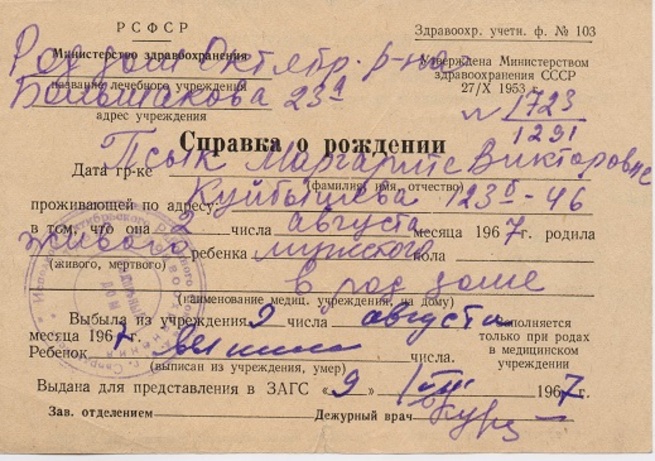 РСФСР
Здравоохр. учетн. ф. № 103
Министерство здравоохранения
Утверждена Министерством
здравоохранения СССР
27/X 1953 г.
Роддом Октябр. р-на
название лечебного учреждения
Большакова 23а
адрес учреждения
№ 1723/1291
Справка о рождении
Дата гр-ке Псык Маргарите Викторовне
(фамилия, имя, отчество)
проживающей по адресу: Куйбышева 123 - 46
в том, что она 2 числа августа месяца 1967 г. родила
живого ребенка мужского пола
(живого, мертвого)
в род доме
(наименование медиц. учреждения, на дому)
Выбыла из учреждения 9 числа августа
месяца 1967 г.
Заполняется
только при родах
в медицинском
учреждении
Ребенок выписан числа.
(выписан из учреждения, умер)
Выдана для представления в ЗАГС «9» VIII 1967 г.
Зав. отделением Дежурный врач